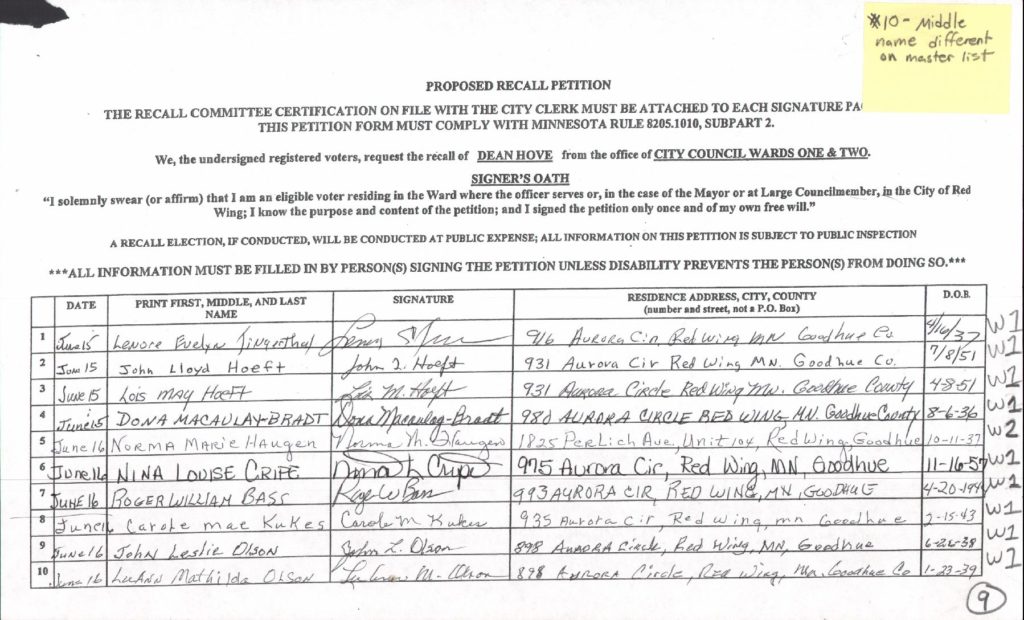 #10 - Middle
name different
on master list
PROPOSED RECALL PETITION
THE RECALL COMMITTEE CERTIFICATION ON FILE WITH THE CITY CLERK MUST BE ATTACHED TO EACH SIGNATURE
THIS PETITION FORM MUST COMPLY WITH MINNESOTA RULE 8205.1010, SUBPART 2.
We, the undersigned registered voters, request the recall of DEAN HOVE from the office of CITY COUNCIL WARDS ONE & TWO.
SIGNER'S OATH
"I solemnly swear (or affirm) that I am an eligible voter residing in the Ward where the officer serves or, in the case of the Mayor or at Large Councilmember, in the City of Red
Wing; I know the purpose and content of the petition; and I signed the petition only once and of my own free will."
A RECALL ELECTION, IF CONDUCTED, WILL BE CONDUCTED AT PUBLIC EXPENSE; ALL INFORMATION ON THIS PETITION IS SUBJECT TO PUBLIC INSPECTION
***ALL INFORMATION MUST BE FILLED IN BY PERSON(S) SIGNING THE PETITION UNLESS DISABILITY PREVENTS THE PERSON(S) FROM DOING SO.***
DATE PRINT FIRST, MIDDLE, AND LAST NAME SIGNATURE RESIDENCE ADDRESS, CITY, COUNTY (number and street, not a P.O. Box) D.O.B.
1 June 15 Lenore Evelyn 916 Aurora Cir, Red Wing MN Goodhue Co. 4/16/37 W1
2 June 15 John Lloyd Hoeft John L Hoeft 931 Aurora Cir Red Wing MN. Goodhue Co. 7/8/51 W1
3 June 15 Lois May Hoeft Lois M. Hoeft 931 Aurora Circle Red Wing MN. Goodhue County 4-8-51 W1
4 June 15 DONA MACAULAY-BRADT Dona Macaulay-Bradt 980 AURORA CIRCLE RED WING, MN. Goodhue County 8-6-36 W1
5 June 16 NORMA MARIE HAUGEN Norma M. Haugen 1825 Perlich Ave, Unit 104, Red Wing, Goodhue 10-11-37 W2
6 June 16 NINA LOUISE CRIPE Nina L Cripe 975 Aurora Cir, Red Wing, MN, Goodhue 11-16-57 W1
7 JUNE 16 ROGER WILLIAM BASS Roger W Bass 993 AURORA CIR, RED WING, MN, GOODHUE 4-20-194 W1
8 June 16 Carole mae Kukes Carole M Kukes 935 Aurora Cir, Red Wing, mn Goodhue 2-15-43 W1
9 June 16 John Leslie Olson John L. Olson 898 Aurora Circle, Red Wing, MN, Goodhue 6-26-38 W1
10 June 16 LuAnn Mathilda Olson LuAnn M. Olson 898 Aurora Circle, Red Wing, Mn. Goodhue Co 1-23-39 W1
9